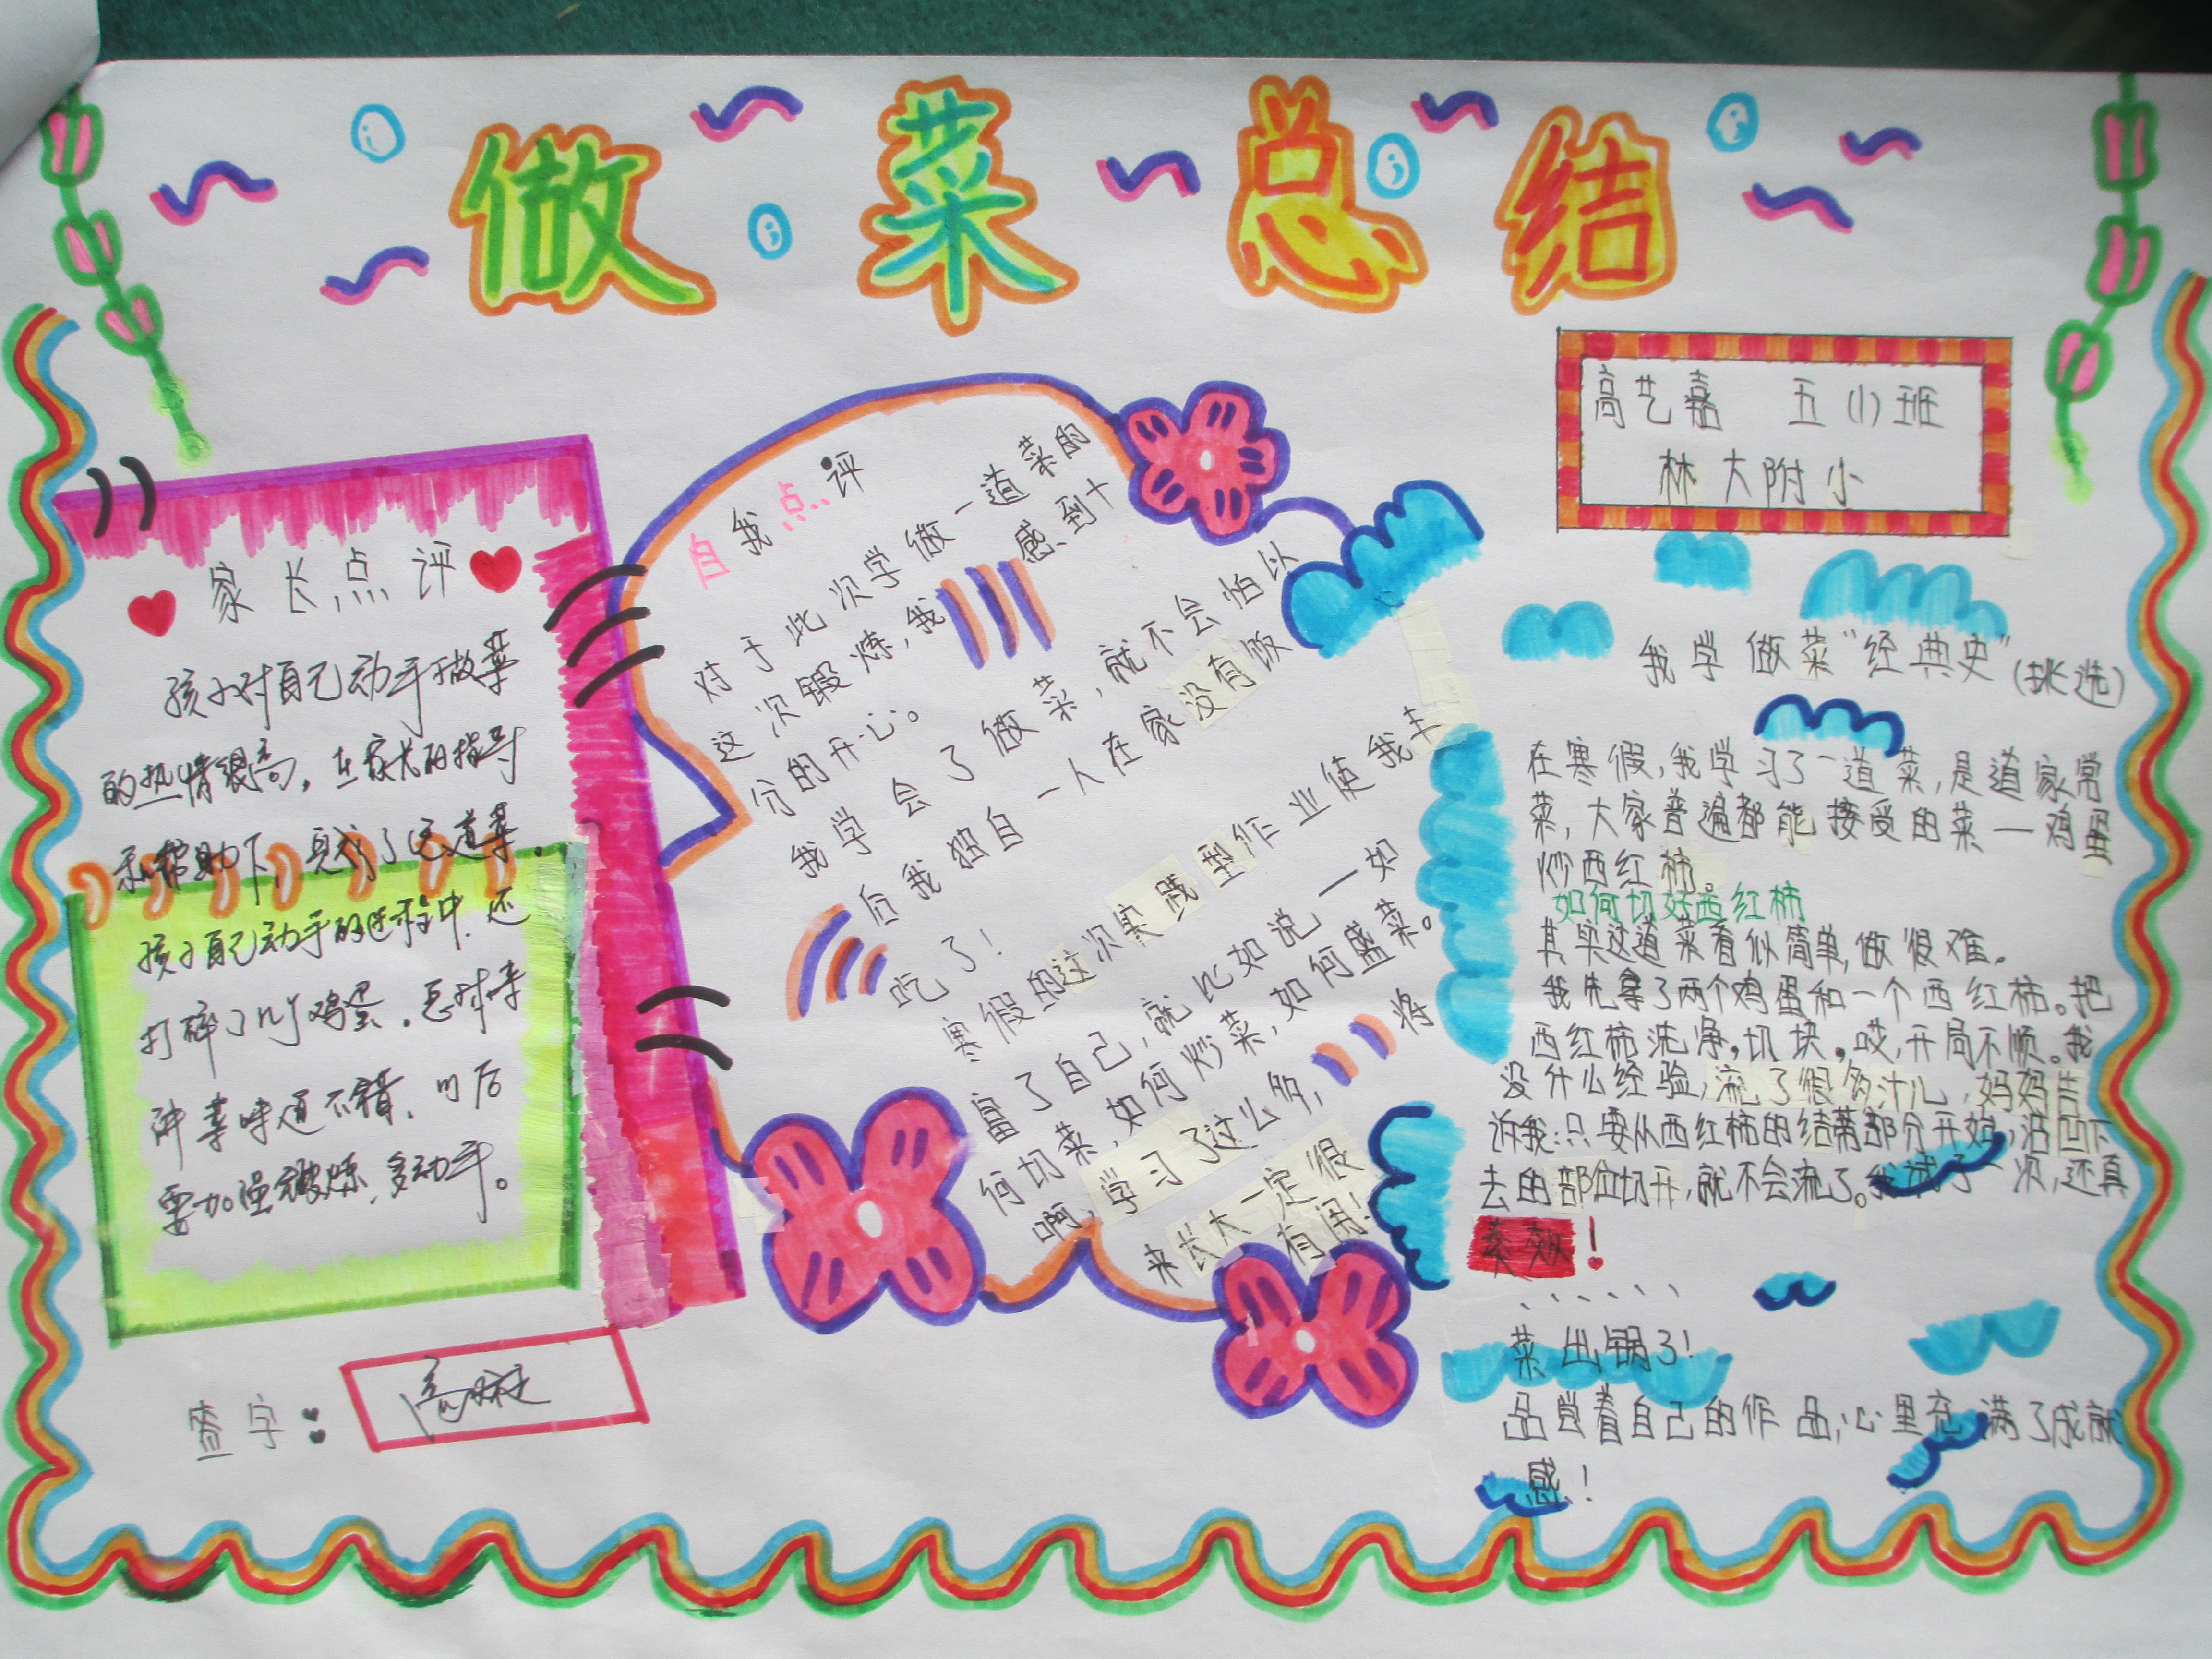 做菜总结
高艺嘉 五(1)班
林大附小
家长点评
孩子对自己动手做菜
的热情很高,在家长的指导
和帮助下,完成了这道菜.
孩子自己动手的过程中.还
打碎了几个鸡蛋.总的来
讲菜味道不错.以后
要加强锻炼,多动手。
签字:
自我点评
对于此次学做一道菜的
这次锻炼,我感到十
分的开心。
我学会了做菜,就不会怕以
后我独自一人在家没有饭
吃了!
寒假的这次实践型作业使我丰
富了自己,就比如说一如
何切菜,如何炒菜,如何盛菜。
啊,学习了这么多,将
来长大一定很
有用!
我学做菜“经典史”(挑选)
在寒假,我学习了一道菜,是道家常
菜,大家普遍都能接受的菜一鸡蛋
炒西红柿。
如何切好西红柿
其实这道菜看似简单,做很难。
我先拿了两个鸡蛋和一个西红柿。把
西红柿洗净,切块。哎,开局不顺。我
没什么经验,流了很多汁儿,妈妈告
诉我:只要从西红柿的结蒂部分开始,沿凹下
去的部位切开,就不会流了。我试了一次,还真
奏效!
......
菜出锅了!
品尝着自己的作品,心里充满了成就
感!